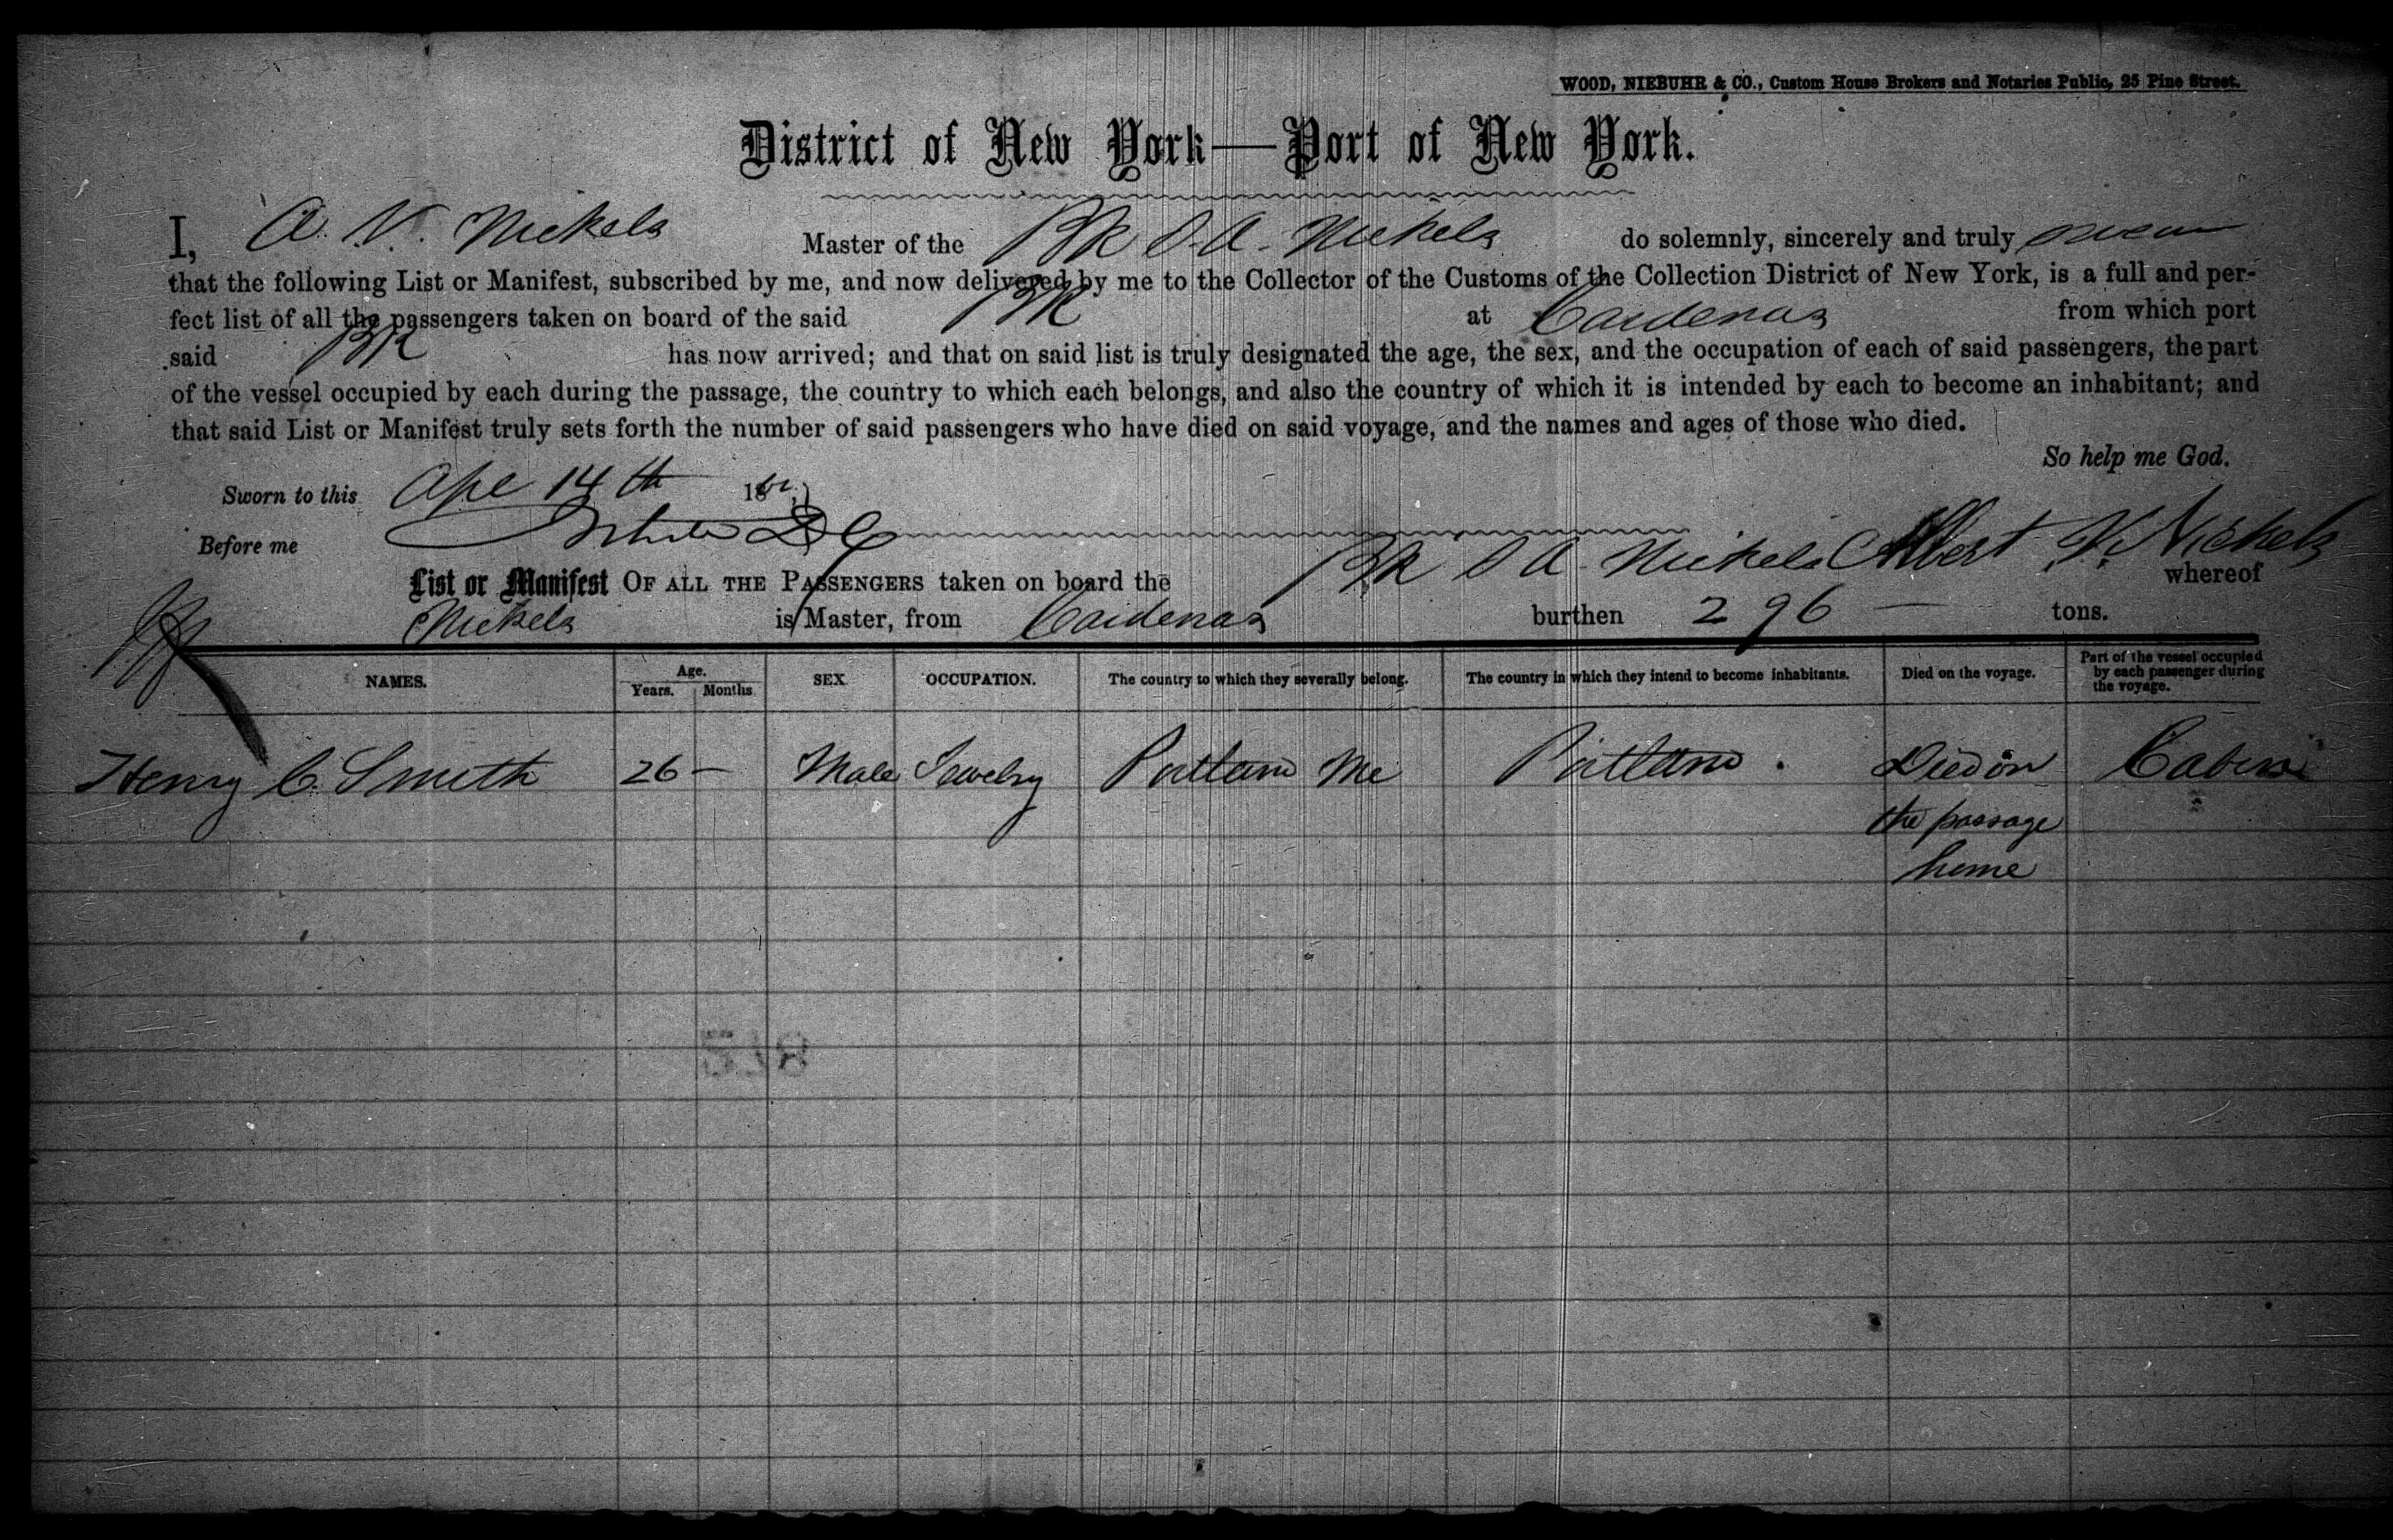 WOOD, NIEBUHR & CO., Custom House Brokers and Notaries Public, 25 Pine Street.
District of New York—Port of New York.
I, A. V. Nickels Master of the Bk S. A. Nickels do solemnly, sincerely and truly swear
that the following List or Manifest, subscribed by me, and now delivered by me to the Collector of the Customs of the Collection District of New York, is a full and per-
fect list of all the passengers taken on board of the said Bk at Cardenas from which port
said Bk has now arrived; and that on said list is truly designated the age, the sex, and the occupation of each of said passengers, the part
of the vessel occupied by each during the passage, the country to which each belongs, and also the country of which it is intended by each to become an inhabitant; and
that said List or Manifest truly sets forth the number of said passengers who have died on said voyage, and the names and ages of those who died.
So help me God.
Sworn to this Apl 14th 18
Before me
Albert V. Nickels
List or Manifest OF ALL THE PASSENGERS taken on board the Bk S A Nickels whereof
Nickels is Master, from Cardenas burthen 296 — tons.
NAMES. Age. Years. Months SEX OCCUPATION. The country to which they severally belong. The country in which they intend to become inhabitants. Died on the voyage. Part of the vessel occupied by each passenger during the voyage.
Henry C. Smith 26 — Male Jewelry Portland Me Portland. Died on Cabin
the passage
home